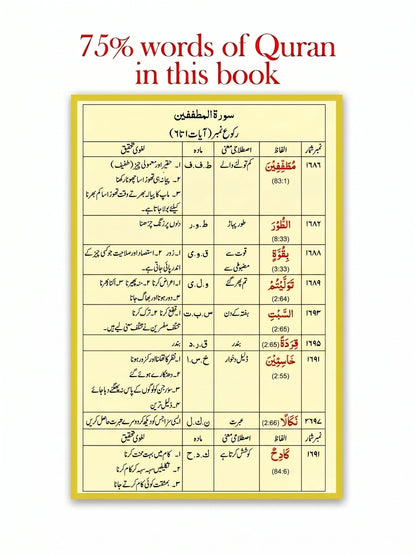 75% words of Quran
in this book
سورة المطففین
رکوع نمبر (آیات ۱ تا ۶)
نمبر شمار الفاظ اصطلاحی معنی مادہ لغوی تحقیق
۱۶۸۶ مُطَفِّفِيْنَ (83:1) کم تولنے والے ط۔ف۔ف ۱۔ حقیر اور معمولی چیز (طفیف)
۲۔ پیمانہ ہی تھوڑا سا چھوٹا رکھنا
۳۔ ماپ کا پیالہ بھرتے وقت تھوڑا اسے کم بھرنا
کیلئے بولا جاتا ہے۔
۱۶۸۷ الطُّوْرَ (8:33) طور پہاڑ ط۔و۔ر دلوں پر زنگ چڑھنا
۱۶۸۸ بِقُوَّةٍ (3:33) قوت سے مضبوطی سے ق۔و۔ی ۱۔ زور ۲۔ استعداد اور صلاحیت جو کسی چیز کے
اندر پائی جاتی ہے۔
۱۶۸۹ تَوَلَّيْتُمْ (2:64) تم پھر گئے و۔ل۔ی ۱۔ اعراض کرنا ۲۔ منہ پھیرنا ۳۔ الٹا پھرنا
۴۔ دور ہونا اور بھاگ جانا
۱۶۹۳ السَّبْتِ (2:65) ہفتہ کے دن س۔ب۔ت ۱۔ قطع کرنا ۲۔ ترک کرنا
مختلف مفسرین نے مختلف معنی لیے ہیں۔
۱۶۹۵ قِرَدَةً (2:65) بندر ق۔ر۔د بندر
۱۶۹۱ خَاسِئِيْنَ (2:55) ذلیل وخوار خ۔س۔ا ۱۔ نظر کا تھکنا اور کمزور ہونا
۲۔ دھتکارے ہوئے گئے
۳۔ سور جن کو لوگوں کے پاس نہ پھٹکنے دیا جائے
۴۔ ذلیل ترین
۲۶۹۷ نَكَالًا (2:66) عبرت ن۔ک۔ل ایسی سزا جس کو دیکھ کر دوسرے عبرت حاصل کریں
نمبر شمار الفاظ اصطلاحی معنی مادہ لغوی تحقیق
۱۶۹۱ كَادِحٌ (84:6) کوشش کرتا ہے ک۔د۔ح ۱۔ کام میں بہت محنت کرنا
۲۔ تکلیفیں سہہ سہہ کر کام کرنا
۳۔ بمشقت کوئی کام کرتے جانا